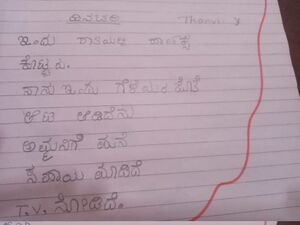 ದಿನಚರಿ Thanvi
ಇಂದು ಶಾಲೆಯಲ್ಲಿ
ಕೊಟ್ಟರು.
ನಾನು ಇಂದು ಗೆಳೆಯರ ಜೊತೆ
ಆಟ ಆಡಿದೆನು
ಅಮ್ಮನಿಗೆ ಮನೆ
ಸಹಾಯ ಮಾಡಿದೆ
T.V. ನೋಡಿದೆ.